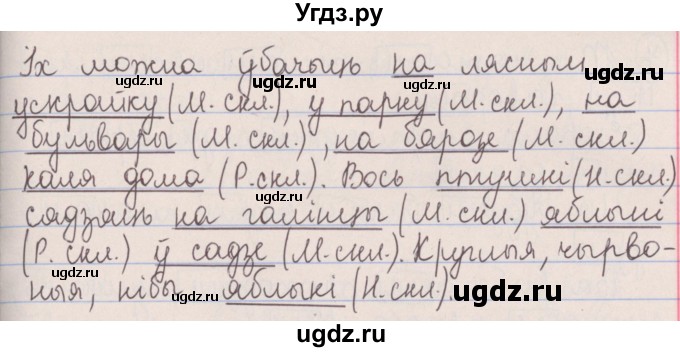 Угдз.ру
Іх можна ўбачыць на лясным
ускрайку (М. скл.), у парку (М. скл.), на
бульвары (М. скл.), на бярозе (М. скл.)
каля дома (Р. скл.). Вось птушкі (Н. скл.)
садзяць на галінцы (М. скл.) яблыні
(Р. скл.) ў садзе (М. скл.). Круглыя, чырво-
ныя, нібы яблыкі (Н. скл.).
gdz.ru
gdz.ru
gdz.ru
gdz.ru
gdz.ru
gdz.ru
gdz.ru
gdz.ru
gdz.ru
gdz.ru
gdz.ru
gdz.ru
ugdz.ru